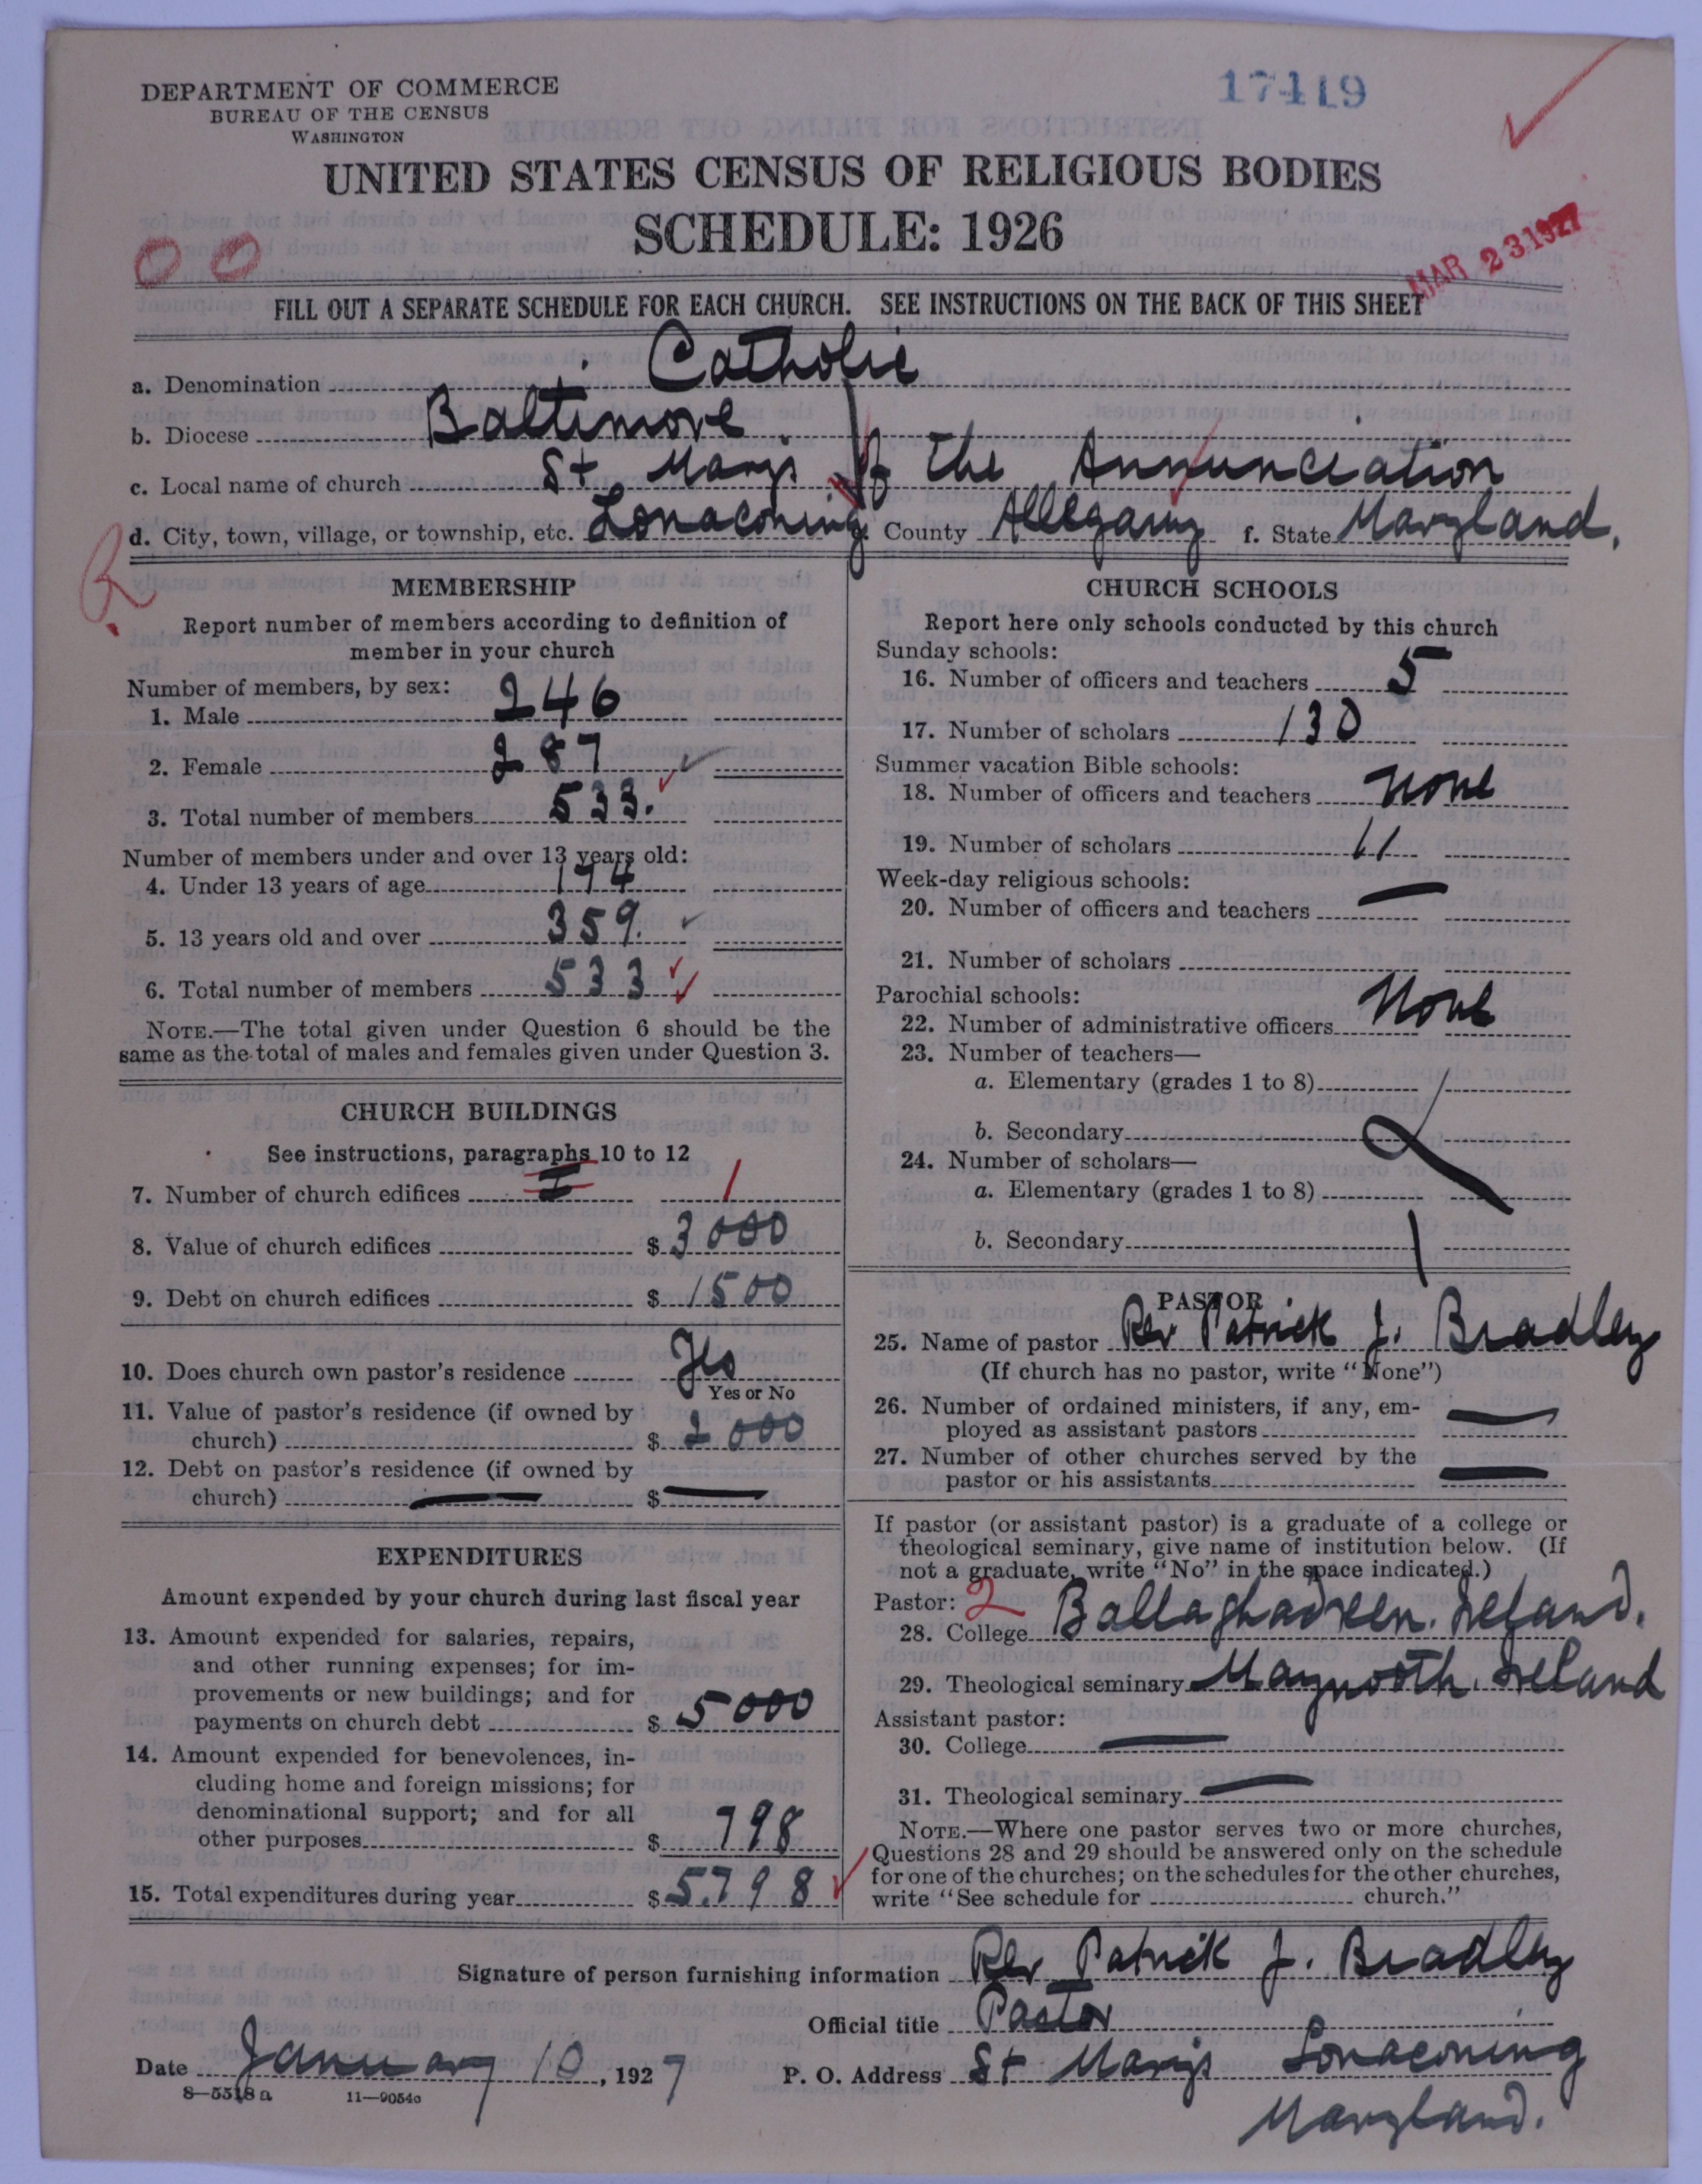 DEPARTMENT OF COMMERCE
BUREAU OF THE CENSUS
WASHINGTON
17419
UNITED STATES CENSUS OF RELIGIOUS BODIES
SCHEDULE: 1926
MAR 23 1927
FILL OUT A SEPARATE SCHEDULE FOR EACH CHURCH. SEE INSTRUCTIONS ON THE BACK OF THIS SHEET
a. Denomination Catholic
b. Diocese Baltimore
c. Local name of church St Marys of the Annunciation
d. City, town, village, or township, etc. Lonaconing County Allegany f. State Maryland.
MEMBERSHIP
Report number of members according to definition of
member in your church
Number of members, by sex:
1. Male 246
2. Female 287
3. Total number of members 533.
Number of members under and over 13 years old:
4. Under 13 years of age 174
5. 13 years old and over 359.
6. Total number of members 533
NOTE.—The total given under Question 6 should be the
same as the total of males and females given under Question 3.
CHURCH BUILDINGS
See instructions, paragraphs 10 to 12
7. Number of church edifices 1
8. Value of church edifices $ 3000
9. Debt on church edifices $ 1500
10. Does church own pastor's residence Yes
Yes or No
11. Value of pastor's residence (if owned by
church) $ 2000
12. Debt on pastor's residence (if owned by
church) — $ —
EXPENDITURES
Amount expended by your church during last fiscal year
13. Amount expended for salaries, repairs,
and other running expenses; for im-
provements or new buildings; and for
payments on church debt $ 5000
14. Amount expended for benevolences, in-
cluding home and foreign missions; for
denominational support; and for all
other purposes $ 798
15. Total expenditures during year $ 5798
CHURCH SCHOOLS
Report here only schools conducted by this church
Sunday schools:
16. Number of officers and teachers 5
17. Number of scholars 130
Summer vacation Bible schools:
18. Number of officers and teachers none
19. Number of scholars 11
Week-day religious schools:
20. Number of officers and teachers —
21. Number of scholars
Parochial schools:
22. Number of administrative officers None
23. Number of teachers—
a. Elementary (grades 1 to 8)
b. Secondary
24. Number of scholars—
a. Elementary (grades 1 to 8)
b. Secondary
PASTOR
25. Name of pastor Rev Patrick J. Bradley
(If church has no pastor, write "None")
26. Number of ordained ministers, if any, em-
ployed as assistant pastors —
27. Number of other churches served by the
pastor or his assistants —
If pastor (or assistant pastor) is a graduate of a college or
theological seminary, give name of institution below. (If
not a graduate, write "No" in the space indicated.)
Pastor: 2
28. College Ballaghadreen. Ireland.
29. Theological seminary Maynooth. Ireland
Assistant pastor:
30. College —
31. Theological seminary —
NOTE.—Where one pastor serves two or more churches,
Questions 28 and 29 should be answered only on the schedule
for one of the churches; on the schedules for the other churches,
write "See schedule for church."
Signature of person furnishing information Rev Patrick J. Bradley
Official title Pastor
Date January 10, 1927 P. O. Address St Marys Lonaconing
8—5518 a 11—9054c
Maryland.